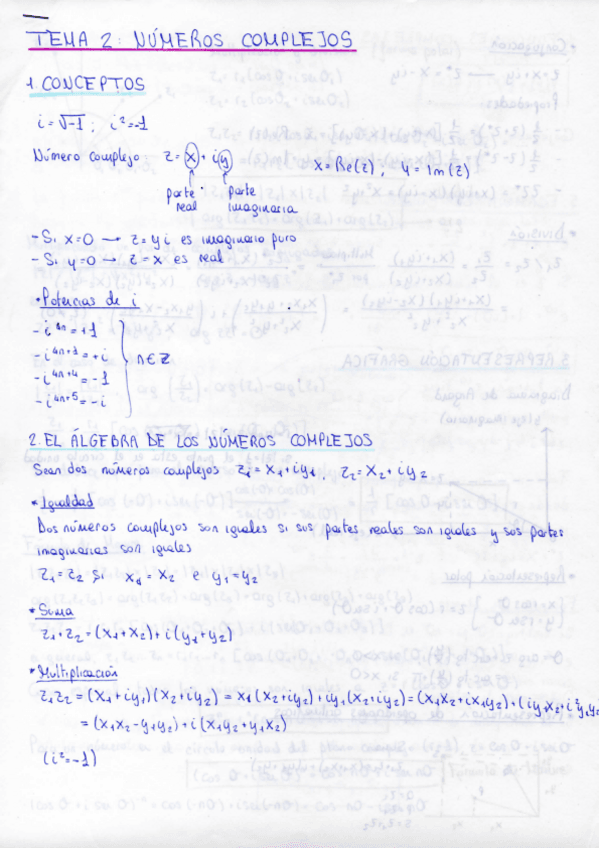 TEMA 2: NÚMEROS COMPLEJOS
1. CONCEPTOS
i = √-1 ; i² = -1
Número complejo z = x + iy x = Re(z) ; y = Im(z)
parte real parte imaginaria
- Si x=0 → z = yi es imaginario puro
- Si y=0 → z = x es real
• Potencias de i
- i⁴ⁿ = +1
- i⁴ⁿ⁺¹ = +i
- i⁴ⁿ⁺⁴ = -1
- i⁴ⁿ⁺⁵ = -i
n ∈ Z
2. EL ÁLGEBRA DE LOS NÚMEROS COMPLEJOS
Sean dos números complejos z₁ = x₁ + iy₁ z₂ = x₂ + iy₂
* Igualdad
Dos números complejos son iguales si sus partes reales son iguales y sus partes
imaginarias son iguales
z₁ = z₂ si x₁ = x₂ e y₁ = y₂
* Suma
z₁ + z₂ = (x₁ + x₂) + i(y₁ + y₂)
* Multiplicación
z₁z₂ = (x₁ + iy₁)(x₂ + iy₂) = x₁(x₂ + iy₂) + iy₁(x₂ + iy₂) = (x₁x₂ + ix₁y₂) + (iy₁x₂ + i²y₁y₂
= (x₁x₂ - y₁y₂) + i(x₁y₂ + y₁x₂)
(i² = -1)